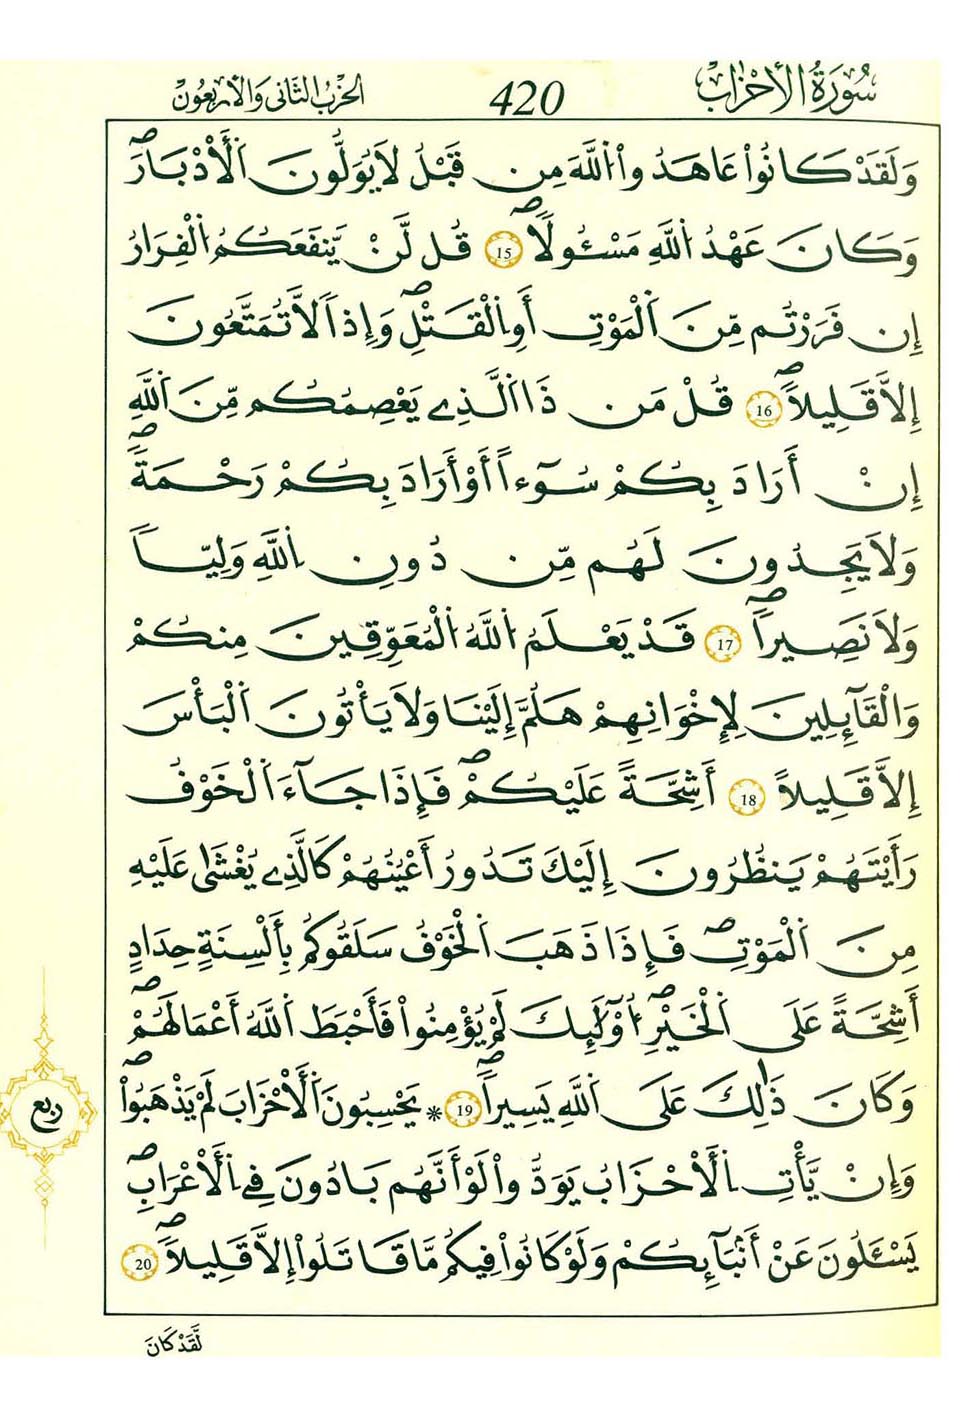 سُورَةُ الأَحْزَابِ 420 الحِزْبُ الثَّانِي وَالأَرْبَعُونَ
وَلَقَدْ كَانُواْ عَاهَدُواْ اُللَّهَ مِن قَبْلُ لَا يُوَلُّونَ اَلَادْبَٰرَۖ
وَكَانَ عَهْدُ اُللَّهِ مَسْـُٔولاًۖ 15 قُل لَّنْ يَّنفَعَكُمُ اُلْفِرَارُ
إِن فَرَرْتُم مِّنَ اَلْمَوْتِ أَوِ اِلْقَتْلِۖ وَإِذاً لَّا تُمَتَّعُونَ
إِلَّا قَلِيلاًۖ 16 قُلْ مَن ذَا اَلَّذِے يَعْصِمُكُم مِّنَ اَللَّهِ
إِنْ أَرَادَ بِكُمْ سُوٓءاً أَوْ أَرَادَ بِكُمْ رَحْمَةًۖ
وَلَا يَجِدُونَ لَهُم مِّن دُونِ اِللَّهِ وَلِيّاً
وَلَا نَصِيراًۖ 17 قَدْ يَعْلَمُ اُللَّهُ اُلْمُعَوِّقِينَ مِنكُمْ
وَالْقَآئِلِينَ لِإِخْوَانِهِمْ هَلُمَّ إِلَيْنَا وَلَا يَأْتُونَ اَلْبَأْسَ
إِلَّا قَلِيلاً 18 أَشِحَّةً عَلَيْكُمْۖ فَإِذَا جَآءَ اَلْخَوْفُ
رَأَيْتَهُمْ يَنظُرُونَ إِلَيْكَ تَدُورُ أَعْيُنُهُمْ كَالَّذِے يُغْشَىٰ عَلَيْهِ
مِنَ اَلْمَوْتِۖ فَإِذَا ذَهَبَ اَلْخَوْفُ سَلَقُوكُم بِأَلْسِنَةٍ حِدَادٍ
أَشِحَّةً عَلَى اَلْخَيْرِۖ اُوْلَٰٓئِكَ لَمْ يُؤْمِنُواْ فَأَحْبَطَ اَللَّهُ أَعْمَالَهُمْۖ
وَكَانَ ذَٰلِكَ عَلَى اَللَّهِ يَسِيراًۖ 19 * يَحْسِبُونَ اَلْأَحْزَابَ لَمْ يَذْهَبُواْۖ
وَإِنْ يَّأْتِ اِلْأَحْزَابُ يَوَدُّواْ لَوْ أَنَّهُم بَادُونَ فِے اِلْأَعْرَابِۖ
يَسْـَٔلُونَ عَنْ أَنۢبَآئِكُمْ وَلَوْ كَانُواْ فِيكُم مَّا قَاتَلُواْ إِلَّا قَلِيلاًۖ 20
ربع
لَّقَدْ كَانَ